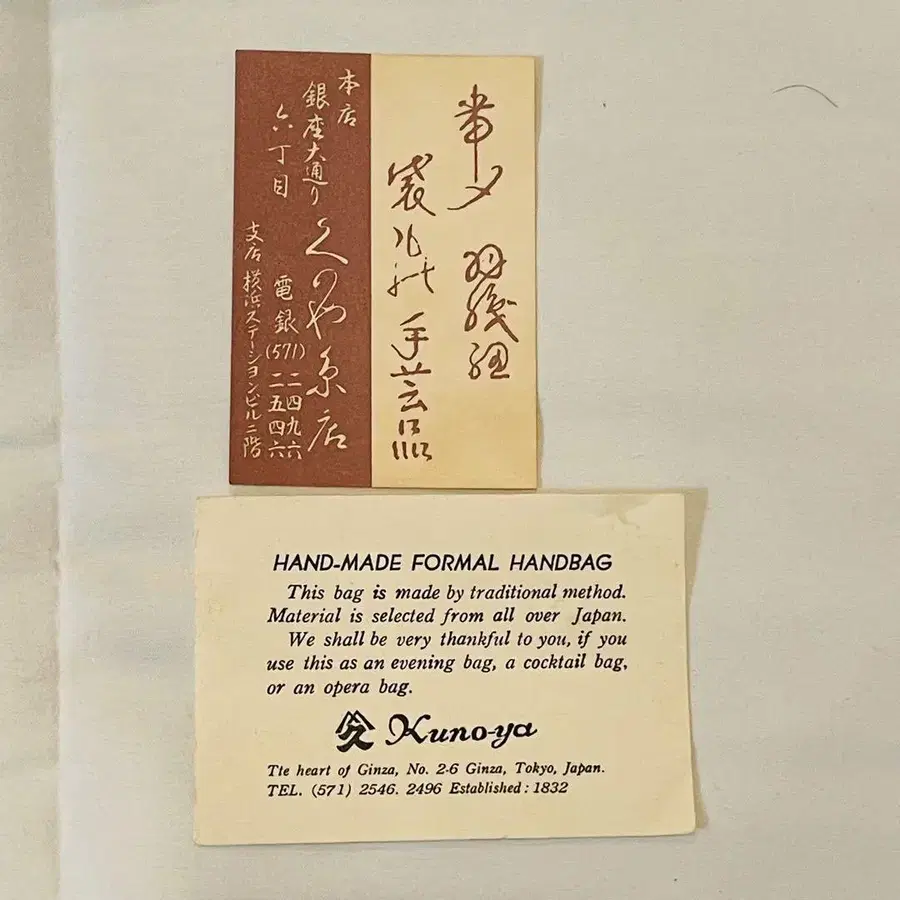 帯〆 羽織紐
袋物 手芸品
本店
銀座大通り
六丁目
くのや糸店
電銀(571)二四九六
二五四六
支店 横浜ステーションビル二階
HAND-MADE FORMAL HANDBAG
This bag is made by traditional method.
Material is selected from all over Japan.
We shall be very thankful to you, if you
use this as an evening bag, a cocktail bag,
or an opera bag.
久 Kuno-ya
Tte heart of Ginza, No. 2-6 Ginza, Tokyo, Japan.
TEL. (571) 2546. 2496 Established : 1832